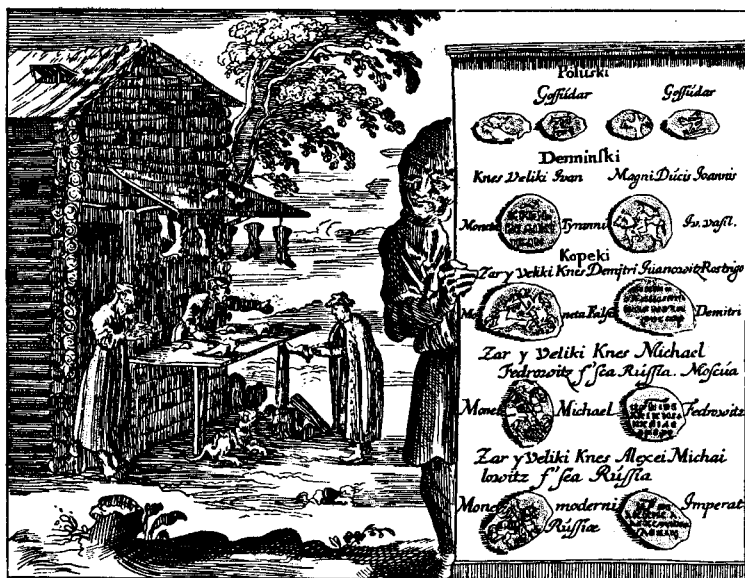 Poluski
Gossúdar Gossúdar
Denninski
Knes Veliki Ivan Magni Dúcis Joannis
Moneta Tyranni Iv. vasil.
Kopeki
Zar y Veliki Knes Demitri Iuanowitz Rostrigo
Mo neta Falsi Demitri
Zar y Veliki Knes Michael
Fedrowitz f'sea Rússia. Moscúa
Monet Michael Fedrowitz
Zar y Veliki Knes Alexei Michai
lowitz f'sea Rússia
Monet moderni Imperat
Rússiæ